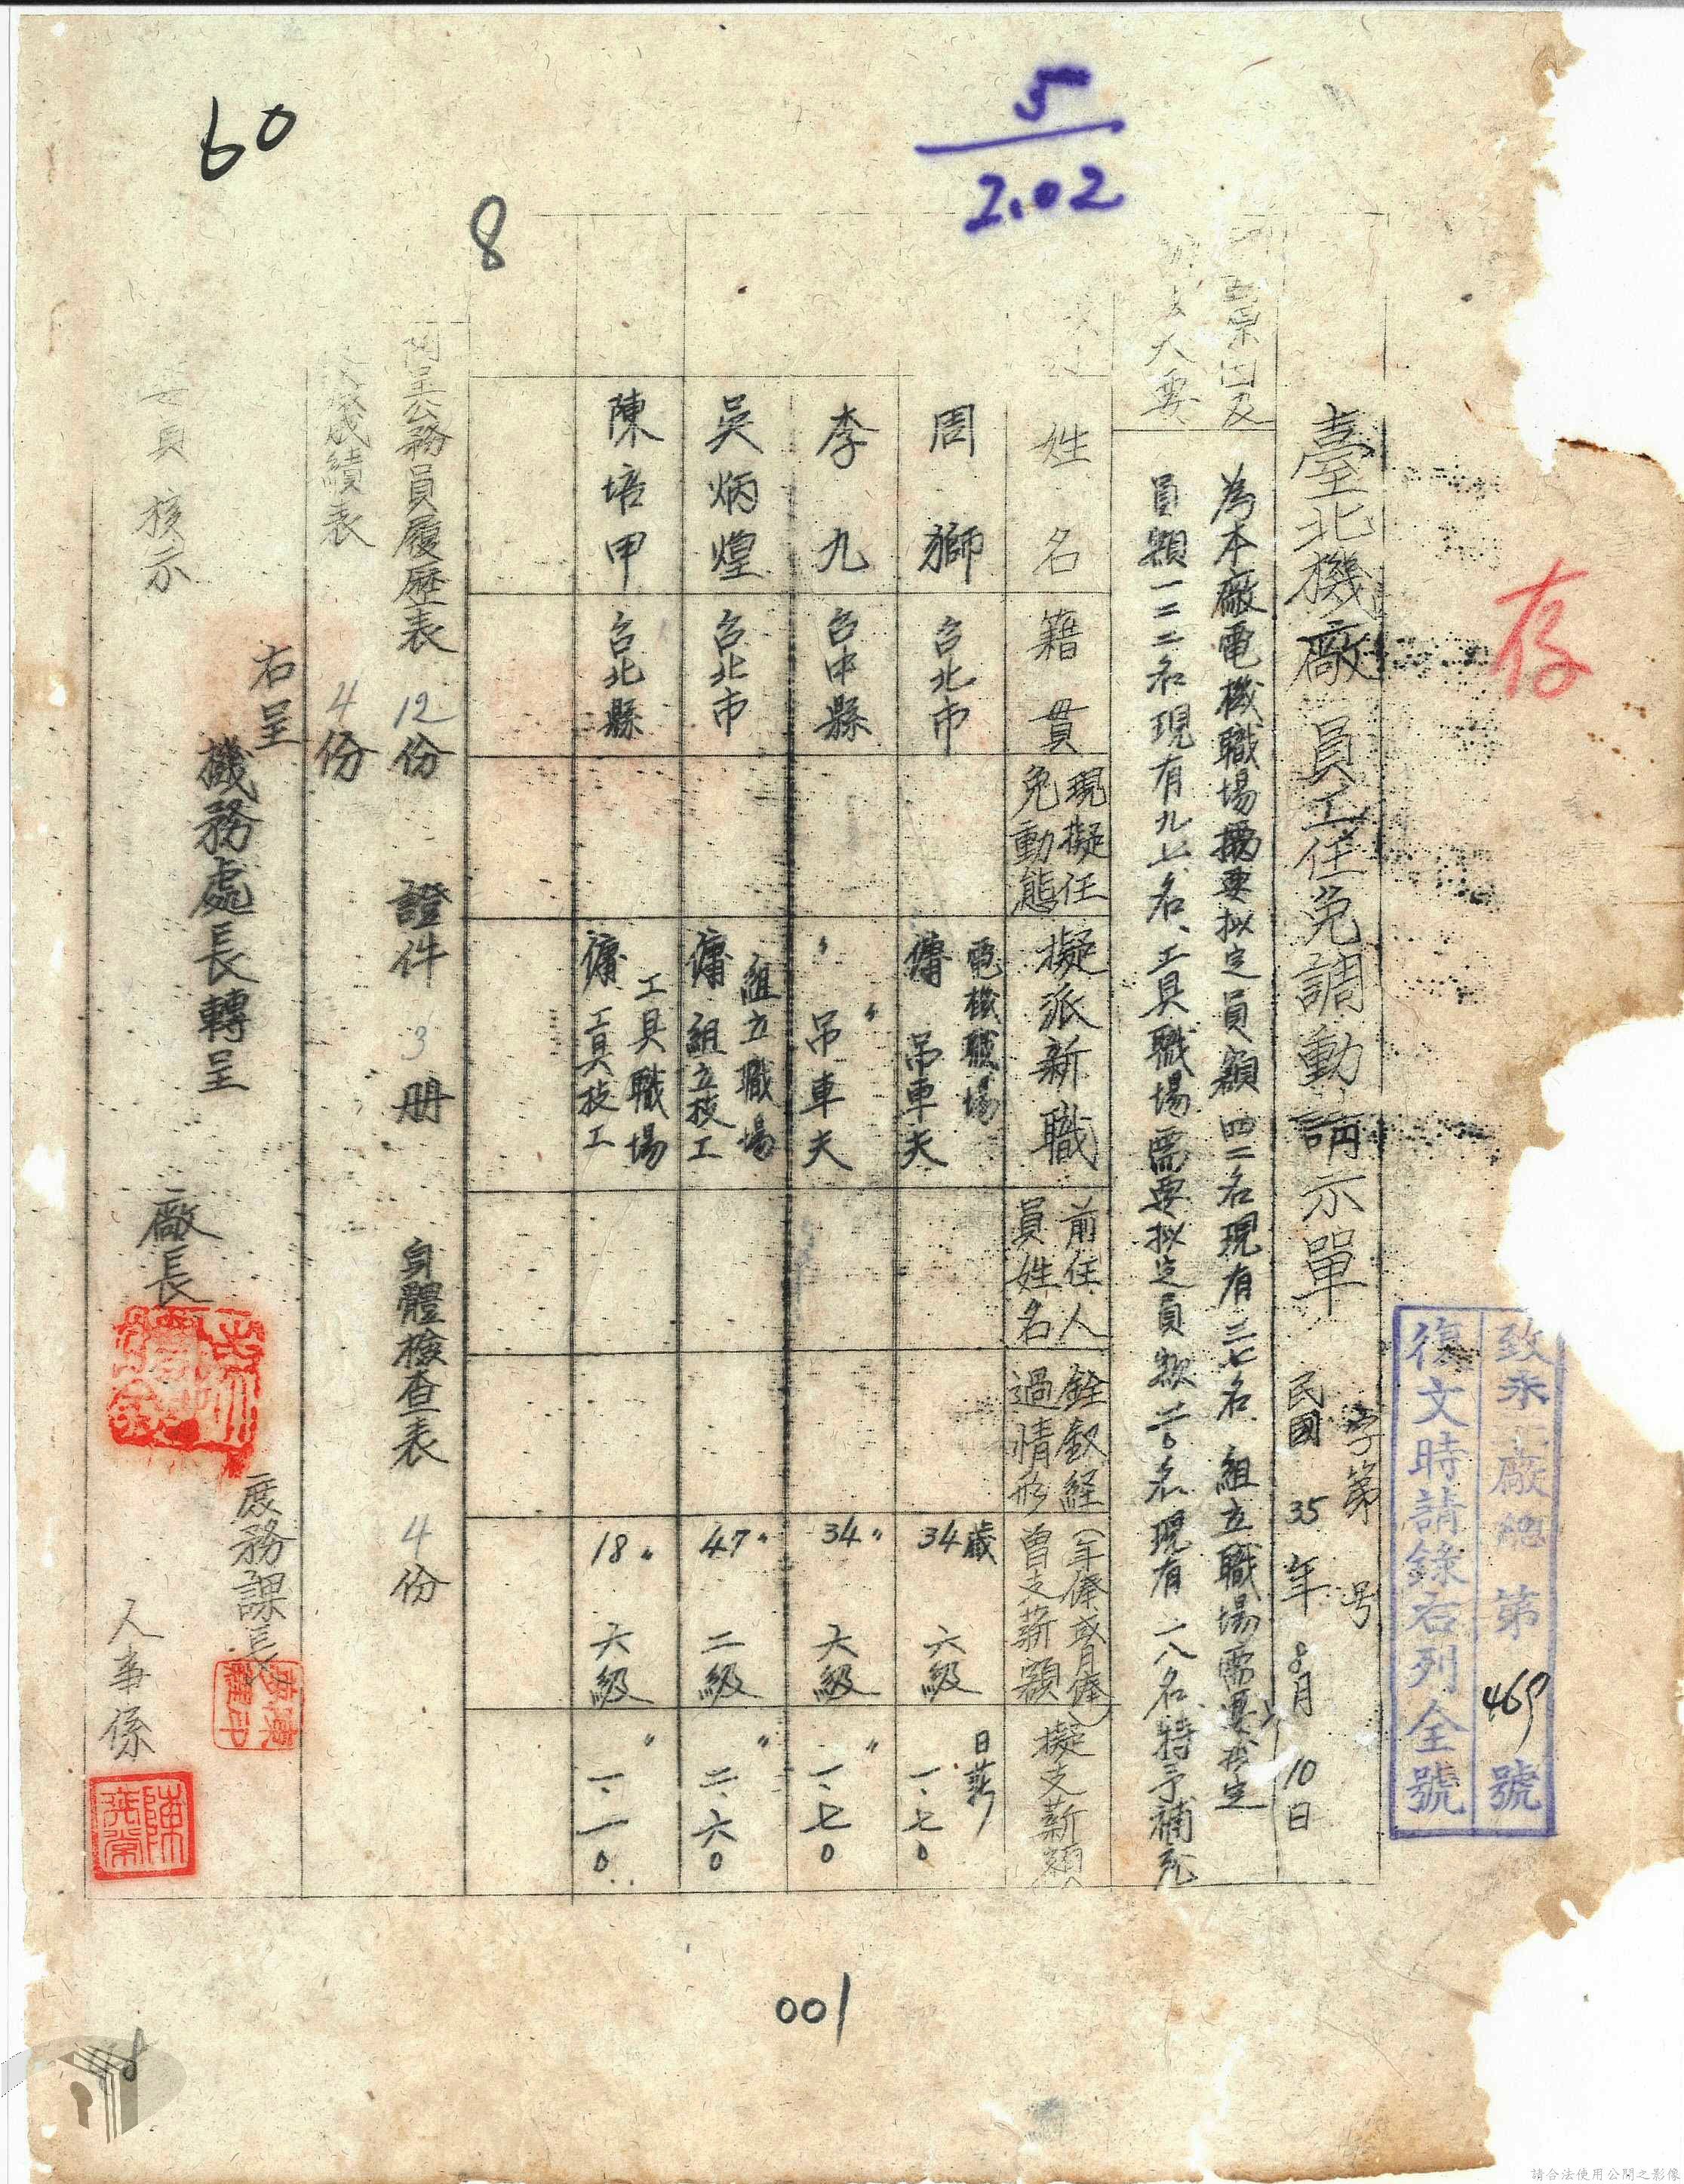 60
5
2.02
8
存
致柒
廠總 第 469 號
復文時請錄右列全號
臺北機廠 員工任免調動請示單
字第 号
民國 35 年 8月 10日
為本廠電機職場 要拟定員額四二名現有三七名 組立職場需要拟定
員額一二二名現有九七名、工具職場需要拟定員額二〇名現有一八名特予補充
姓名
籍貫
現擬任免動態
擬派新職
前任人員姓名
銓敘経過情形
(年俸或月俸)曾支薪額
擬支薪額
周獅 台北市 電機職場 傭 吊車夫 34歲 六級 日薪 一.七0
李九 台中縣 〃 〃 吊車夫 34〃 六級 〃 一.七0
吳炳煌 台北市 組立職場 傭 組立技工 47〃 二級 〃 二.六0
陳培甲 台北縣 工具職場 傭 工具技工 18〃 六級 〃 一.一0
附呈公務員履歷表 12份 證件 3 册 身體檢查表 4份
成績表 4份
右呈
機務處長轉呈
員 核示
廠長
庶務課長
人事係
001
請合法使用公開之影像